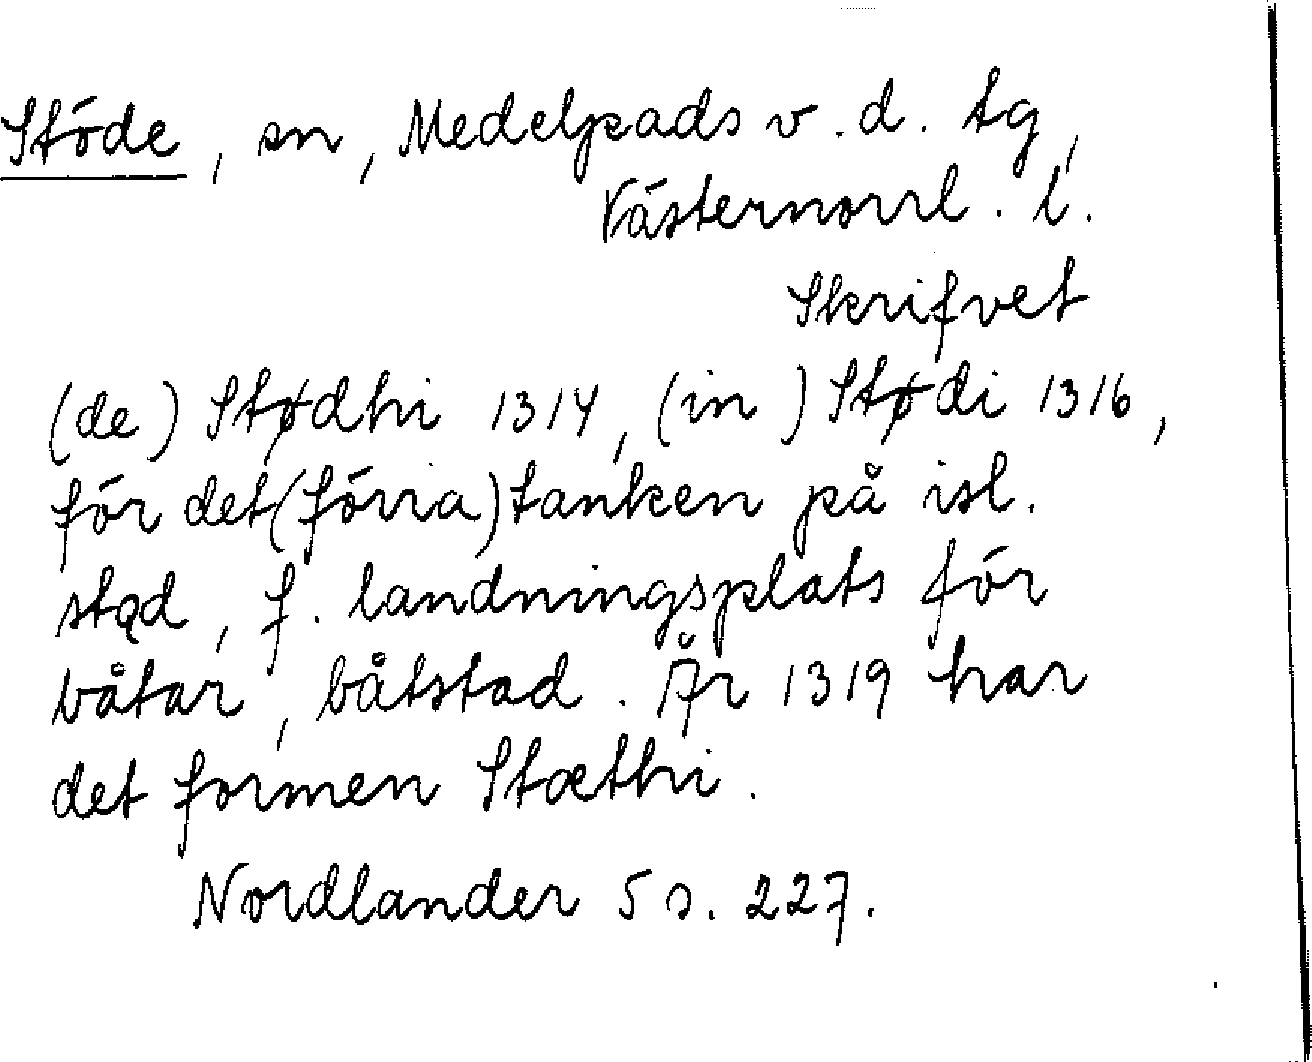 Stöde, sn, Medelpads v. d. tg,
Västernorrl. l.
Skrifvet
(de) Stødhi 1314, (in) Stødi 1316,
för det (förra) tanken på isl.
stǫd, f. landningsplats för
båtar, båtstad. År 1319 har
det formen Stæthi.
Nordlander 5 s. 227.